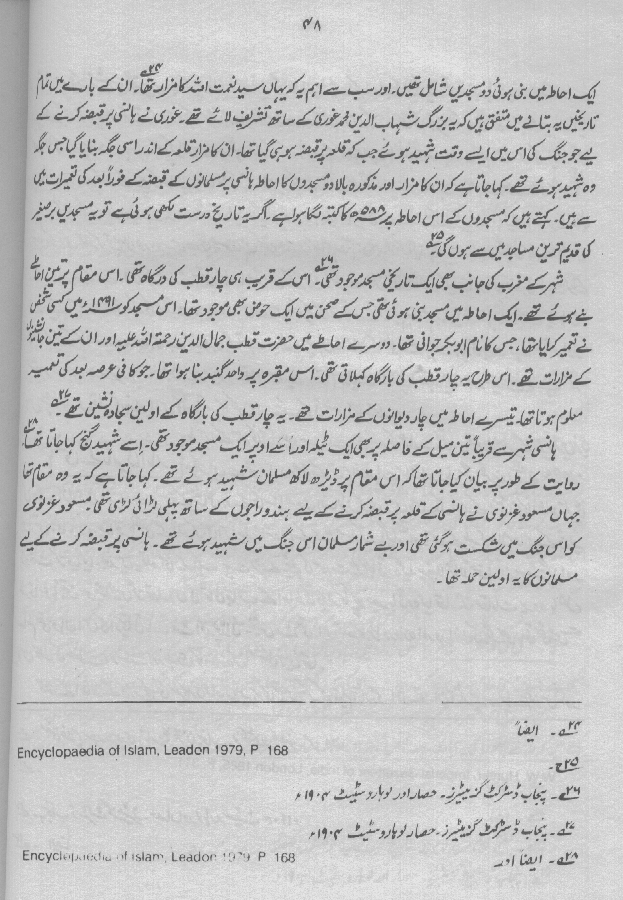 ۴۸
ایک احاطہ میں بنی ہوئی دو مسجدیں شامل تھیں۔ اور سب سے اہم یہ کہ یہاں سید نعمت اللہ کا مزار تھا۲۴۔ ان کے بارے میں تمام
تاریخیں یہ بتانے میں متفق ہیں کہ یہ بزرگ شہاب الدین محمد غوری کے ساتھ تشریف لائے تھے۔ غوری نے ہانسی پر قبضہ کرنے کے
لیے جو جنگ کی اس میں ایسے وقت شہید ہوئے جب کہ قلعہ پر قبضہ ہو ہی گیا تھا۔ ان کا مزار قلعہ کے اندر اسی جگہ بنایا گیا جس جگہ
وہ شہید ہوئے تھے۔ کہا جاتا ہے کہ ان کا مزار اور مذکورہ بالا دو مسجدوں کا احاطہ ہانسی پر مسلمانوں کے قبضہ کے فوراً بعد کی تعمیرات میں
سے ہیں۔ کہتے ہیں کہ مسجدوں کے اس احاطہ پر ۵۸۸ھ کا کتبہ لگا ہوا ہے۔ اگر یہ تاریخ درست لکھی ہوئی ہے تو یہ مسجدیں برصغیر
کی قدیم ترین مساجد میں سے ہوں گی۲۵۔
شہر کے مغرب کی جانب بھی ایک تاریخی مسجد موجود تھی۲۶۔ اس کے قریب ہی چار قطب کی درگاہ تھی۔ اس مقام پر تین احاطے
بنے ہوئے تھے۔ ایک احاطہ میں مسجد بنی ہوئی تھی جس کے صحن میں ایک حوض بھی موجود تھا۔ اس مسجد کو ۱۴۹۱ء میں کسی شخص
نے تعمیر کرایا تھا، جس کا نام ابوبکر جوانی تھا۔ دوسرے احاطے میں حضرت قطب جمال الدین رحمۃ اللہ علیہ اور ان کے تین جانشینوں
کے مزارات تھے۔ اس طرح یہ چار قطب کی بارگاہ کہلاتی تھی۔ اس مقبرہ پر واحد گنبد بنا ہوا تھا۔ جو کافی عرصہ بعد کی تعمیر
معلوم ہوتا تھا۔ تیسرے احاطہ میں چار دیوانوں کے مزارات تھے۔ یہ چار قطب کی بارگاہ کے اولین سجادہ نشین تھے۲۷۔
ہانسی شہر سے قریباً تین میل کے فاصلہ پر بھی ایک ٹیلہ اور اسکے اوپر ایک مسجد موجود تھی۔ اسے شہید گنج کہا جاتا تھا۲۸۔
روایت کے طور پر بیان کیا جاتا تھا کہ اس مقام پر ڈیڑھ لاکھ مسلمان شہید ہوئے تھے۔ کہا جاتا ہے کہ یہ وہ مقام تھا
جہاں مسعود غزنوی نے ہانسی کے قلعہ پر قبضہ کرنے کے لیے ہندو راجوں کے ساتھ پہلی لڑائی لڑی تھی۔ مسعود غزنوی
کو اس جنگ میں شکست ہو گئی تھی اور بے شمار مسلمان اس جنگ میں شہید ہوئے تھے۔ ہانسی پر قبضہ کرنے کے لیے
مسلمانوں کا یہ اولین حملہ تھا۔
۲۴۔ ایضاً
۲۵۔ Encyclopaedia of Islam, Leadon 1979, P 168
۲۶۔ پنجاب ڈسٹرکٹ گزیٹیرز۔ حصار اور لوہارو سٹیٹ ۱۹۰۴ء
۲۷۔ پنجاب ڈسٹرکٹ گزیٹیرز۔ حصار لوہارو سٹیٹ ۱۹۰۴ء
۲۸۔ ایضاً اور Encyclopaedia of Islam, Leadon 1979 P 168